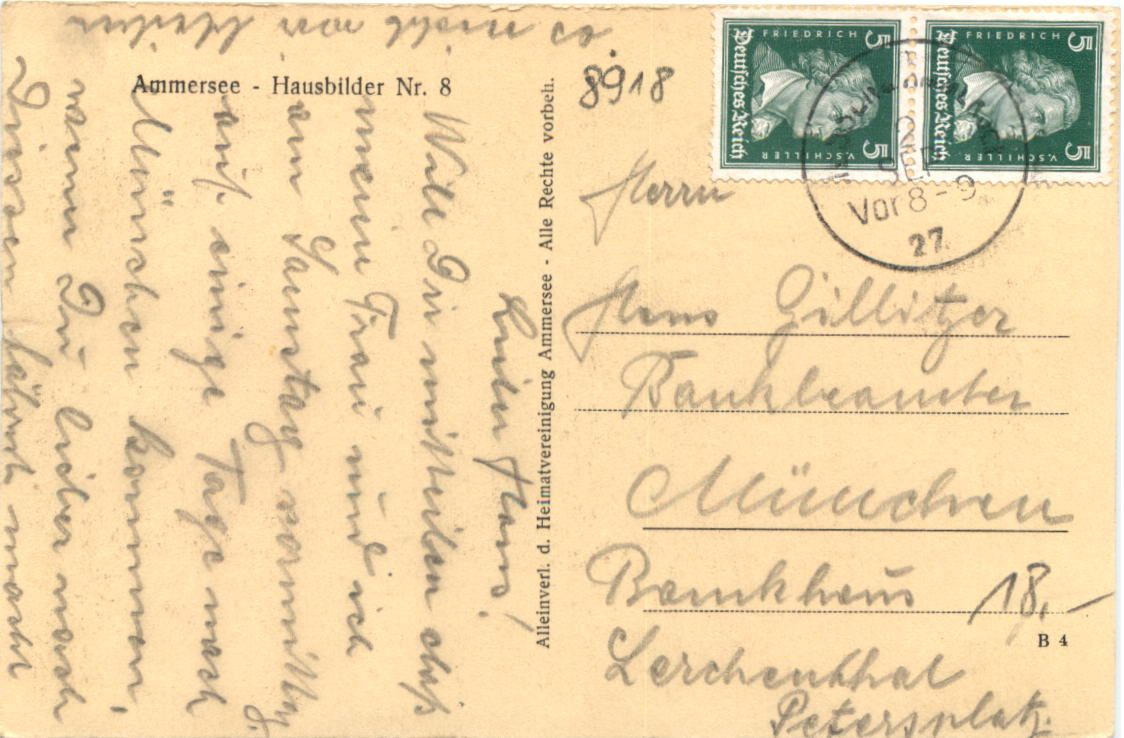 Ammersee - Hausbilder Nr. 8
Lieber Hans!
Will Dir mitteilen daß
meine Frau und ich
am Samstag vormittag
auf einige Tage nach
München kommen,
wenn Du lieber nach
Diessen fährst macht
nicht wir bleiben
Alleinverl. d. Heimatvereinigung Ammersee - Alle Rechte vorbeh.
8918
5 FRIEDRICH
Deutsches Reich
5 V. SCHILLER
5 FRIEDRICH
Deutsches Reich
5 V. SCHILLER
Vor 8-9
27
Herrn
Hans Gillitzer
Bankbeamter
München
Bankhaus
18,-
B 4
Lerchenthal
Petersplatz.